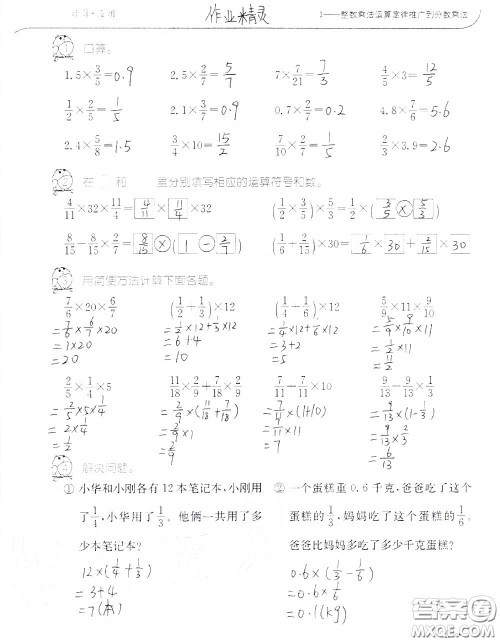 计算·应用 作业精灵 1——整数乘法运算定律推广到分数乘法
1 口算。
1.5×3/5=0.9 2.5×2/7=5/7 7×7/21=7/3 4/5×3=12/5
1/2×2/5=1/5 2.1×3/7=0.9 0.7×2/7=0.2 4.8×7/6=5.6
2.4×5/8=1.5 3/4×10=15/2 7/10×2/7=1/5 2/3×3.9=2.6
2 在 和 里分别填写相应的运算符号和数。
4/11×32×11/4=4/11×11/4×32 (1/2×3/5)×5/3=1/2×(3/5×5/3)
8/15-8/15×2/7=8/15×(1-2/7) (1/6+2/15)×30=1/6×30+2/15×30
3 用简便方法计算下面各题。
7/6×20×6/7 (1/2+1/3)×12 (1/4+1/6)×12 5/9×11×9/10
=7/6×6/7×20 =1/2×12+1/3×12 =1/4×12+1/6×12 =5/9×9/10×11
=1×20 =6+4 =3+2 =1/2×11
=20 =10 =5 =11/2
2/5×1/4×5 11/18×2/9+7/18×2/9 7/11+7/11×10 9/13-9/13×1/3
=2/5×5×1/4 =2/9×(11/18+7/18) =7/11×(1+10) =9/13×(1-1/3)
=2×1/4 =2/9×1 =7/11×11 =9/13×2/3
=1/2 =2/9 =7 =6/13
4 解决问题。
① 小华和小刚各有12本笔记本,小刚用
了1/4,小华用了1/3。他俩一共用了多
少本笔记本?
12×(1/4+1/3)
=3+4
=7(本)
② 一个蛋糕重0.6千克,爸爸吃了这个
蛋糕的1/3,妈妈吃了这个蛋糕的1/6。
爸爸比妈妈多吃了多少千克蛋糕?
0.6×(1/3-1/6)
=0.6×1/6
=0.1(kg)
答案圈
MXQE.COM